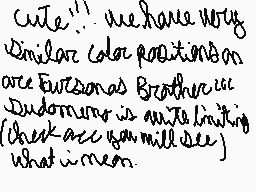 cute!!! we have very
similar color positions on
are Fursonas Brother !!!
Sudomemo is quite limiting
(check acc you will see)
what i mean.